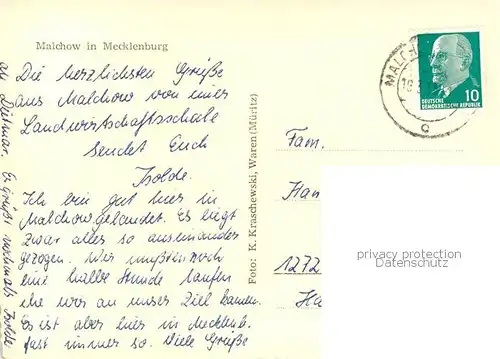 Malchow in Mecklenburg
Die herzlichsten Grüße
aus Malchow von einer
Landwirtschaftsschule
sendet Euch
Isolde.
Ich bin gut hier in
Malchow gelandet. Es liegt
zwar alles so auseinander
gezogen. Wir mußten noch
eine halbe Stunde laufen
ehe wir an unser Ziel kamen.
Es ist aber hier in Mecklenb.
fast immer so. Viele Grüße
an Dietmar. Es Grüßt nochmals Isolde
Foto: K. Kraschewski, Waren (Müritz)
MALCH
10
DEUTSCHE
DEMOKRATISCHE REPUBLIK
Fam.
Han
1272
Ha
privacy protection
Datenschutz